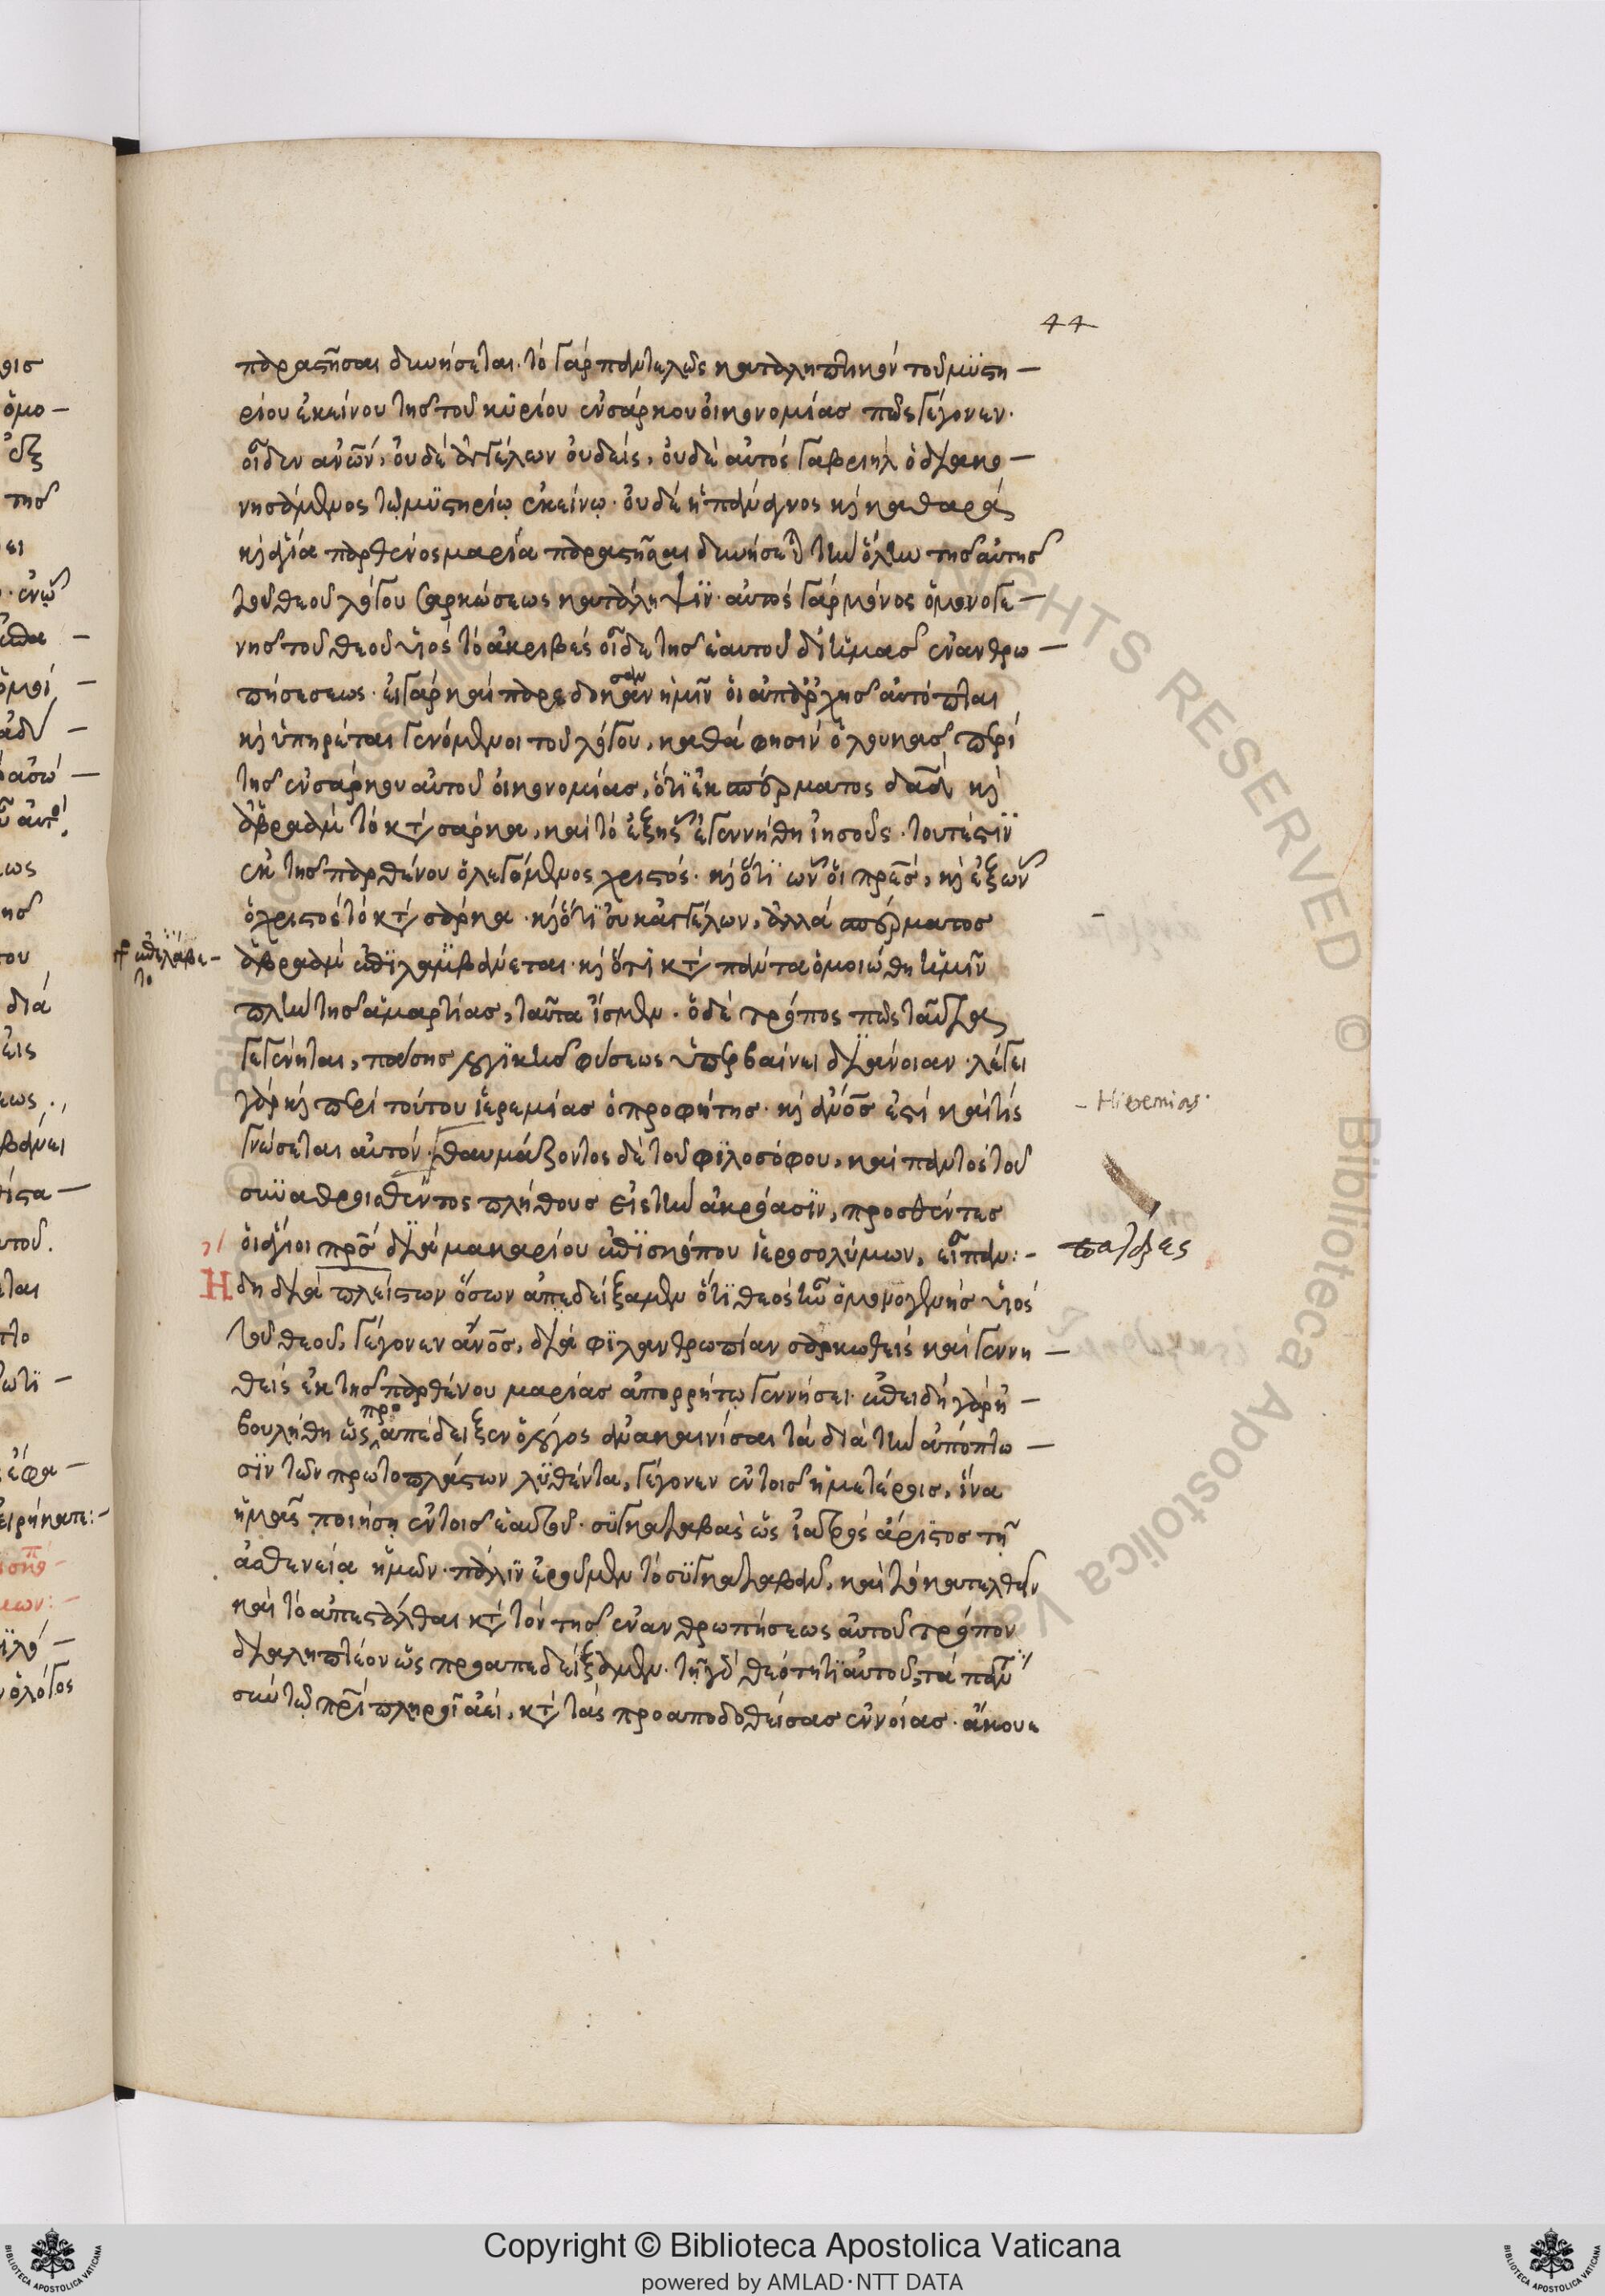 44
παραστῆσαι δυνήσεται. τὸ γὰρ παντελῶς καταληπτικὸν τοῦ μυστη-
ρίου ἐκείνου τῆς τοῦ κυρίου ἐνσάρκου οἰκονομίας πῶς γέγονεν.
οἶδεν ἀνῶν, οὐδὲ ἀγγέλων οὐδείς, οὐδὲ αὐτὸς γαβριὴλ ὁ διακο-
νησάμενος τῷ μυστηρίῳ ἐκείνῳ. οὐδὲ ἡ πάναγνος καὶ καθαρὰ
καὶ ἁγία παρθένος μαρία παραστῆσαι δυνήσεται τὴν ὅλην τῆς αὐτῆς
τοῦ θεοῦ λόγου σαρκώσεως κατάληψιν. αὐτὸς γὰρ μόνος ὁ μονογε-
νὴς τοῦ θεοῦ υἱὸς τὸ ἀκριβὲς οἶδε τῆς ἑαυτοῦ δι' ἡμᾶς ἐνανθρω-
πήσεσεως. εἰ γὰρ καὶ παρεδόκησαν ἡμῖν οἱ ἀπαρχῆς αὐτόπται
καὶ ὑπηρέται γενόμενοι τοῦ λόγου, καθά φησιν ὁ λουκᾶς περὶ
τῆς ἐνσάρκου αὐτοῦ οἰκονομίας, ὅτι ἐκ σπέρματος δαδ καὶ
ἀβραὰμ τὸ κατὰ σάρκα, καὶ τὸ ἑξῆς ἐγεννήθη ἰησοῦς. τουτέστιν
ἐκ τῆς παρθένου ὁ λεγόμενος χριστός. καὶ ὅτι ὧν οἱ πρες, καὶ ἐξ ὧν
ὁ χριστὸς τὸ κατὰ σάρκα. καὶ ὅτι οὐκ ἀγγέλων, ἀλλὰ σπέρματος
ἐπελάβε-
το
ἀβραὰμ ἐπιλαμβάνεται. καὶ ὅτι κατὰ πάντα ὁμοιώθη ἡμῖν
πλὴν τῆς ἁμαρτίας, ταῦτα ἴσμεν. ὁ δὲ τρόπος πῶς ταῦτα
γεγένηται, πάσης λογικῆς φύσεως ὑπερβαίνει διάνοιαν. λέγει
γὰρ καὶ περὶ τούτου ἱερεμίας ὁ προφήτης. καὶ ἀνός ἐστι καὶ τίς
- Hieremias.
γνώσεται αὐτόν. θαυμάζοντος δὲ τοῦ φιλοσόφου, καὶ παντὸς τοῦ
συναθροισθέντος πλήθους εἰς τὴν ἀκρόασιν, προσθέντες
οἱ ἅγιοι πρς διὰ μακαρίου ἐπισκόπου ἱεροσολύμων, εἶπαν:-
Ἤδη διὰ πλείστων ὅσων ἀπεδείξαμεν ὅτι θεὸς ὢν ὁ μονογενὴς υἱὸς
τοῦ θεοῦ, γέγονεν ἄνος, διὰ φιλανθρωπίαν σαρκωθεὶς καὶ γεννη-
θεὶς ἐκ τῆς παρθένου μαρίας ἀπορρήτῳ γεννήσει. ἐπειδὴ γὰρ ἠ-
βουλήθη ὡς προαπέδειξεν ὁ λόγος ἀνακαινίσαι τὰ διὰ τὴν ἀπόπτω-
σιν τῶν πρωτοπλάστων λυθέντα, γέγονεν ἐν τοῖς ἡμετέροις, ἵνα
ἡμᾶς ποιήσῃ ἐν τοῖς ἑαυτοῦ. συγκαταβὰς ὡς ἰατρὸς ἄριστος τῇ
ἀσθενείᾳ ἡμῶν. πάλιν ἐροῦμεν τὸ συγκαταβάν, καὶ τὸ κατελθεῖν
καὶ τὸ ἀπεστάλθαι κατὰ τὸν τῆς ἐνανθρωπήσεως αὐτοῦ τρόπον
διαληπτέον ὡς προαπεδείξαμεν. τῇ γὰρ θεότητι αὐτοῦ, τὰ πάν
σὺν τῷ πρὶ πληροῖ ἀεί, κατὰ τὰς προαποδοθείσας ἐννοίας. ἄκουε